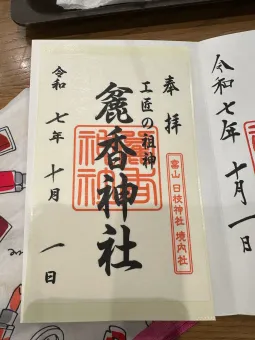 奉拝
工匠の祖神
麁香神社
令和七年十月一日
富山 日枝神社 境内社
令和七年十月一日